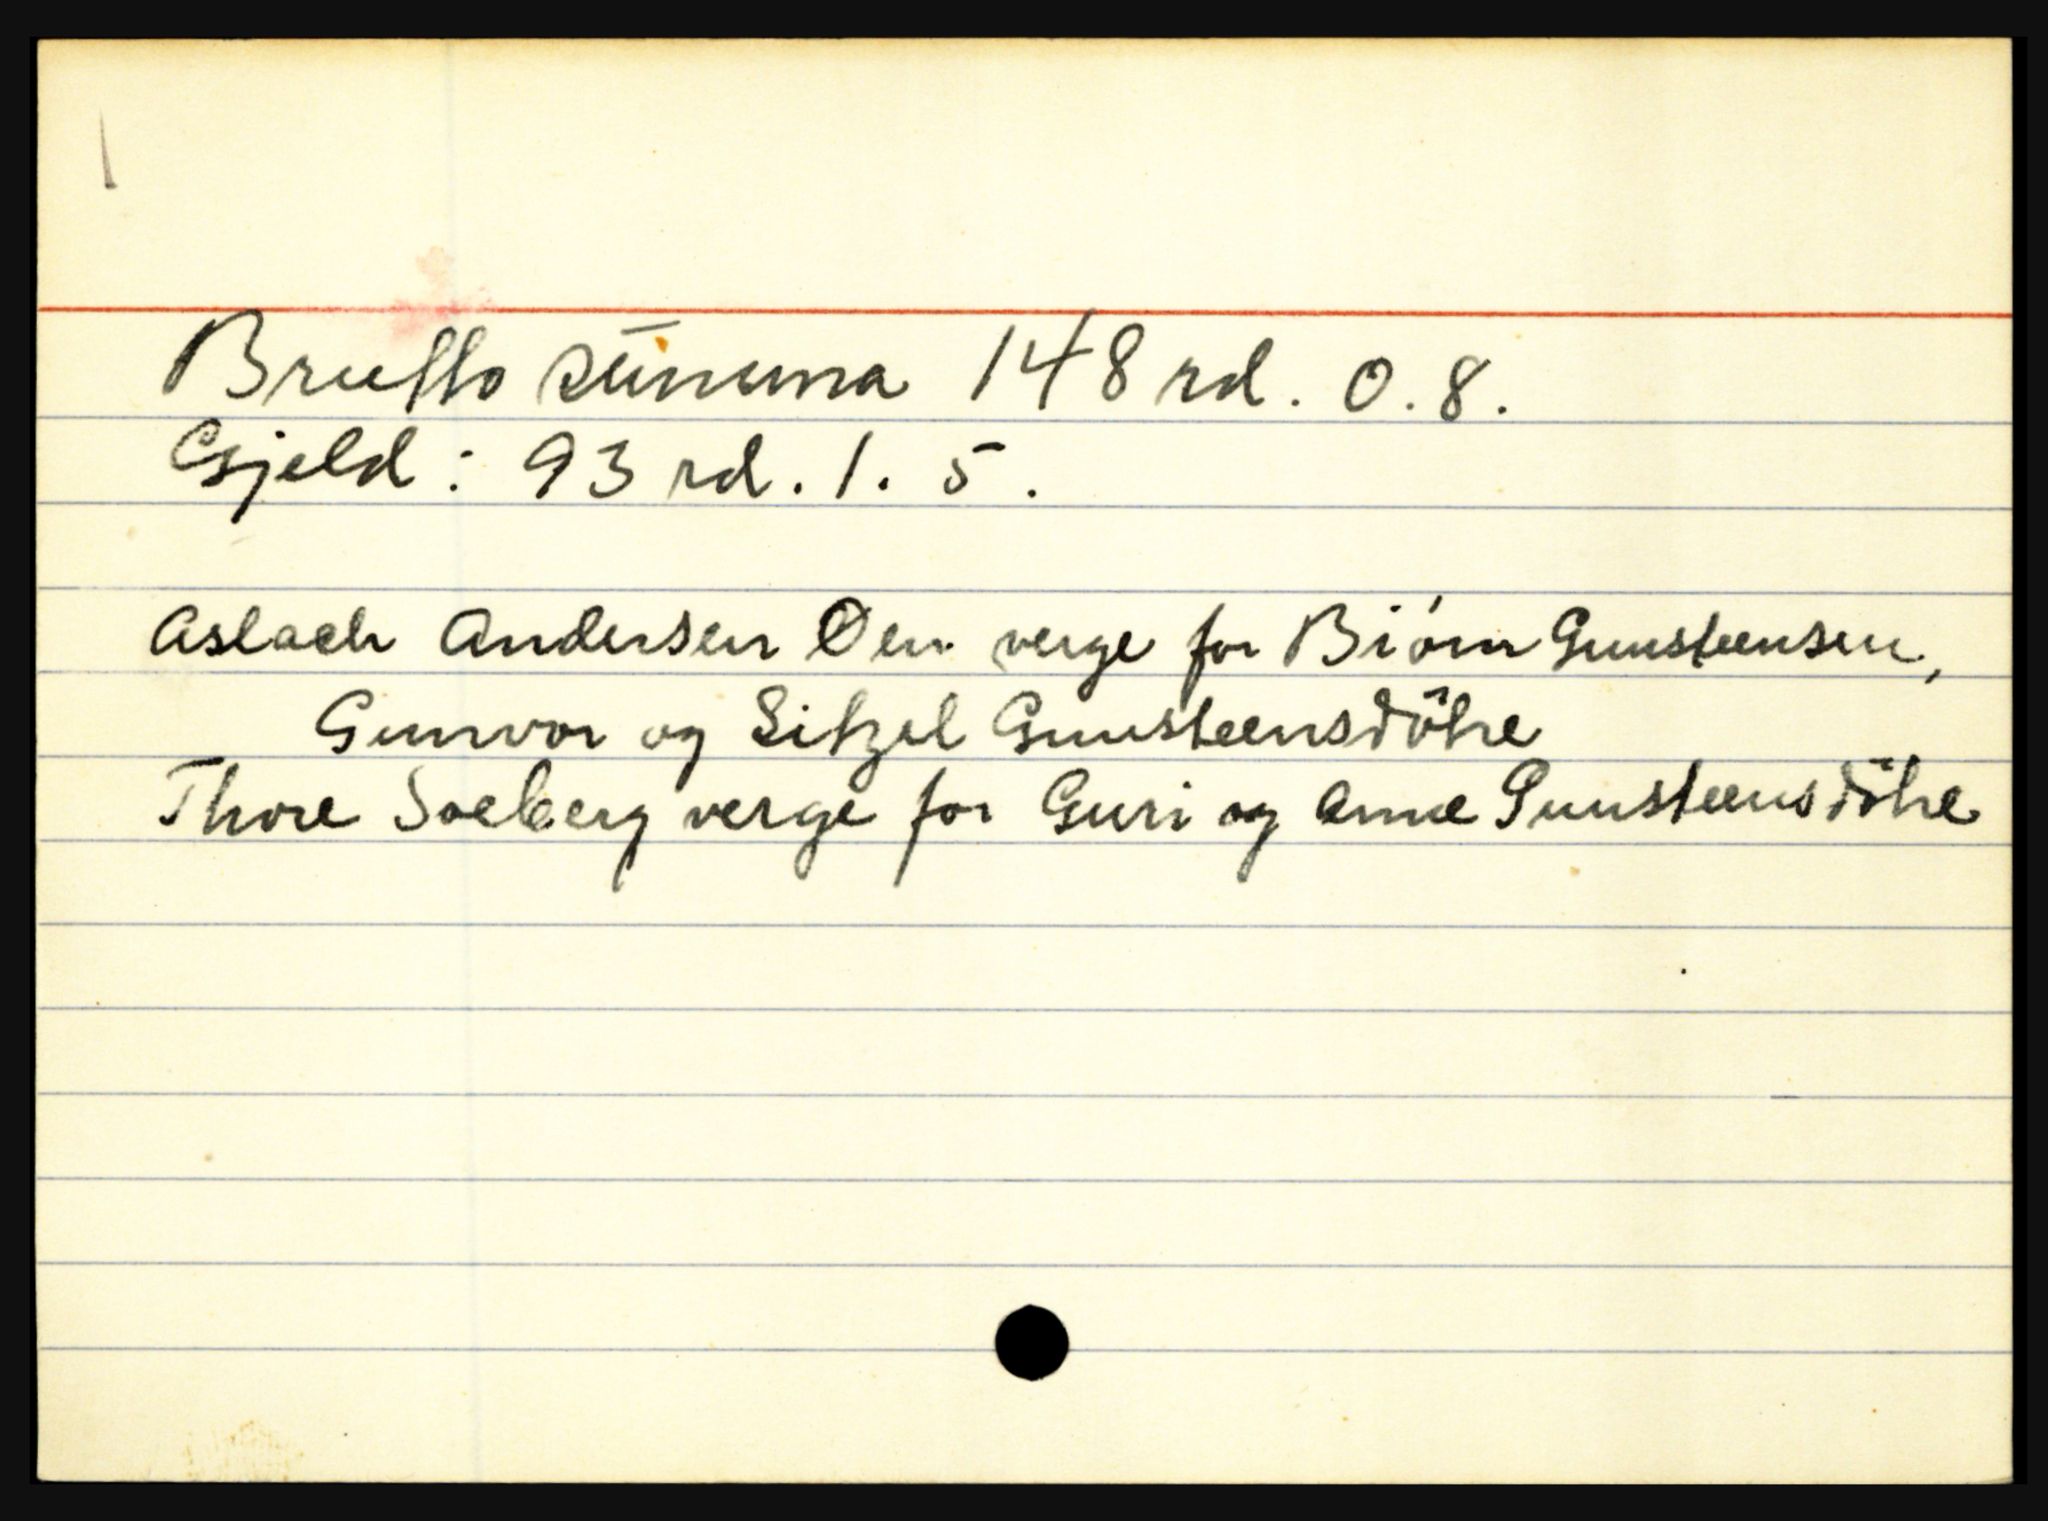 Brutto summa 148 rd. 0.8.
Gjeld: 93 rd. 1. 5.
Aslach Andersen Øen verge for Biørn Gunsteensen,
Gunvor og Sitzel Gunsteensdötre
Thore Soeberg verge for Guri og Anne Gunsteensdötre